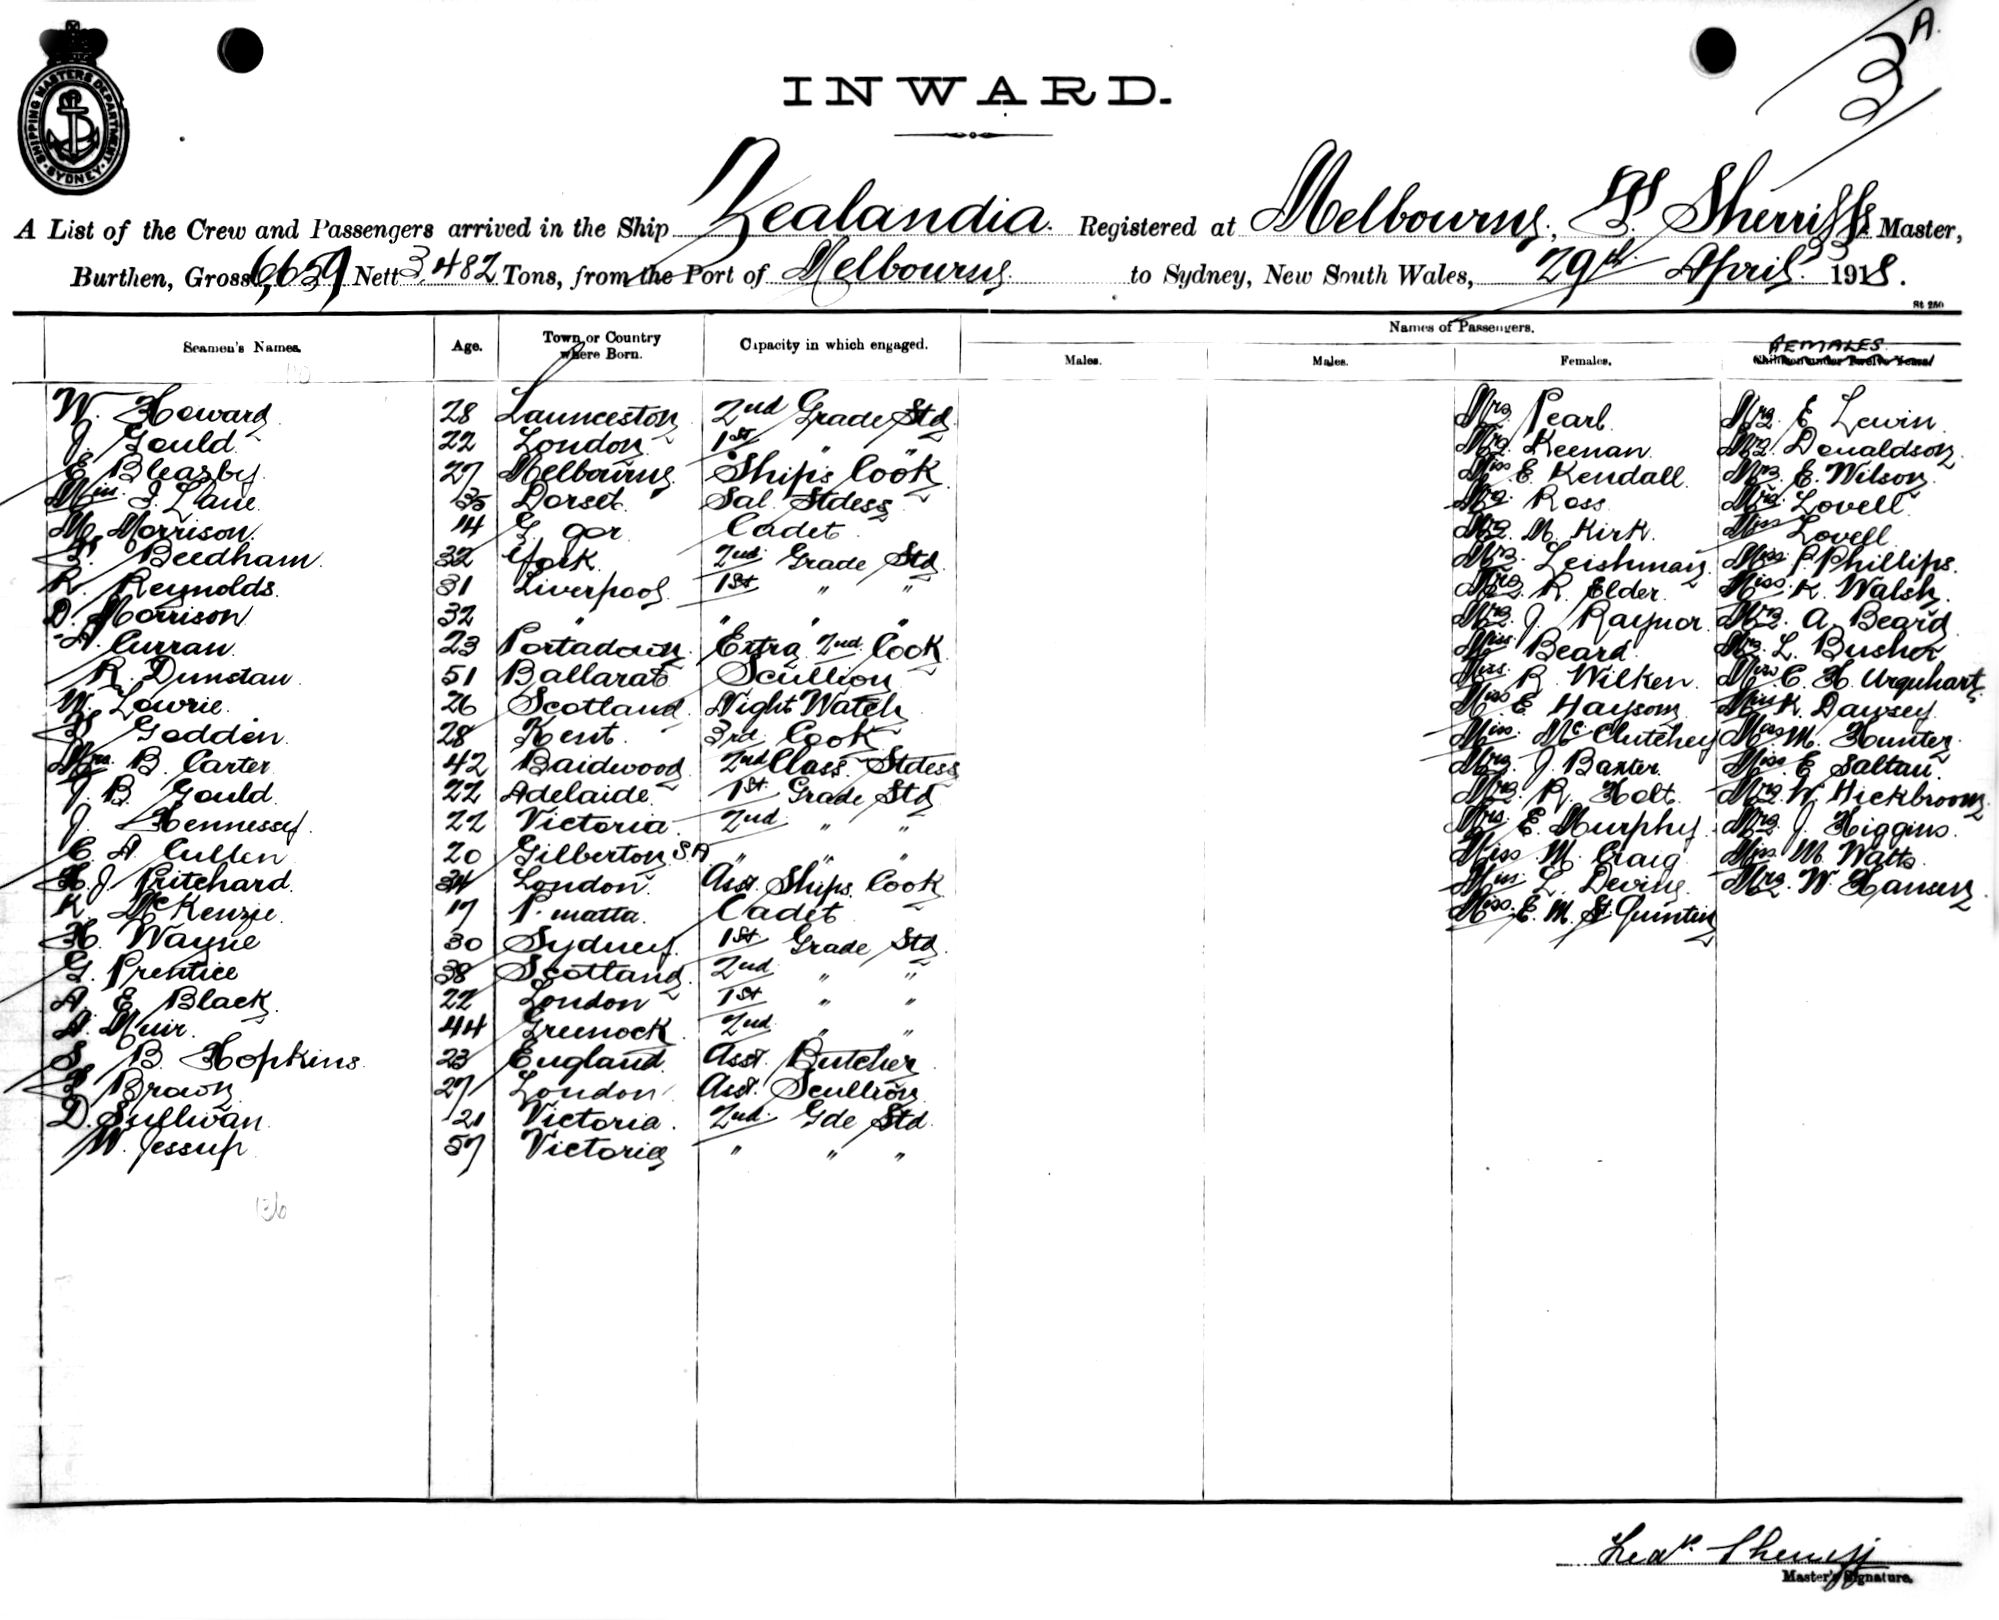 3 A.
SHIPPING MASTERS DEPARTMENT SYDNEY
INWARD.
A List of the Crew and Passengers arrived in the Ship Zealandia. Registered at Melbourne, Sherriff Master,
Burthen, Gross 6,659 Nett 3,482 Tons, from the Port of Melbourne to Sydney, New South Wales, 29th April 1918.
St 250
Names of Passengers.
Seamen's Names. Age. Town or Country where Born. Capacity in which engaged. Males. Males. Females. FEMALES. Children under Twelve Years
W. Howard 28 Launceston 2nd Grade Std. Mrs Pearl. Mrs. E Lewin.
J. Gould. 22 London 1st " " Mrs Keenan. Mrs. Donaldson.
E Bleasby. 27 Melbourne Ships Cook Miss E Kendall. Mrs E. Wilson.
Miss. I. Lane. 35 Dorset. Sal. Stdess Mrs. Ross. Mrs. Lovell.
M. Morrison. 14 Cadet. Mrs. M. Kirk. Miss Lovell.
Beedham. 32 York 2nd. Grade Std. Mrs. Leishman. Miss. Phillips.
R. Reynolds. 31 Liverpool. 1st " " Mrs. R. Elder. Miss. K. Walsh.
D. Morrison 32 " " " " Mrs. J. Raynor. Mrs. A. Beard.
A Curran. 23 Portadown. Extra 2nd Cook Miss. Beard. Mrs. L. Busher
R. Dunstan. 51 Ballarat Scullion R Wilken. Miss E. H. Urquhart.
W. Lowrie. 26 Scotland. Night Watch Miss E Haysom. Miss K. Dawsey.
Godden. 28 Kent. 3rd Cook Miss. McClutchey Miss M. Hunter.
Mrs. B. Carter. 42 Baidwood 2nd Class. Stdess Mrs. J. Baxter. Miss. E Saltau.
J. B. Gould. 22 Adelaide. 1st Grade Std. Mrs. R. Holt. Mrs. W. Hickbroom.
J. Hennessy. 22 Victoria. 2nd " " Mrs. E. Murphy. Mrs. J. Higgins.
C. A. Cullen 20 Gilberton SA " " " Miss M. Craig. Miss. M. Watts.
H. J. Pritchard. 34 London. Asst. Ships. Cook Miss. L. Devine. Mrs. W. Hansen.
K. McKenzie. 17 P. matta. Cadet Miss. E. M. St Quintin
H. Wayne 30 Sydney. 1st Grade Std.
G. Prentice 38 Scotland. 2nd " "
A. E Black. 22 London 1st " "
A. Muir. 44 Greenock. 2nd " "
S. B. Hopkins. 23 England. Asst. Butcher
Brown. 27 London Asst. Scullion
D. Sullivan. 21 Victoria. 2nd. Gde Std.
W. Jessup. 57 Victoria " " "
136
Master's Signature.